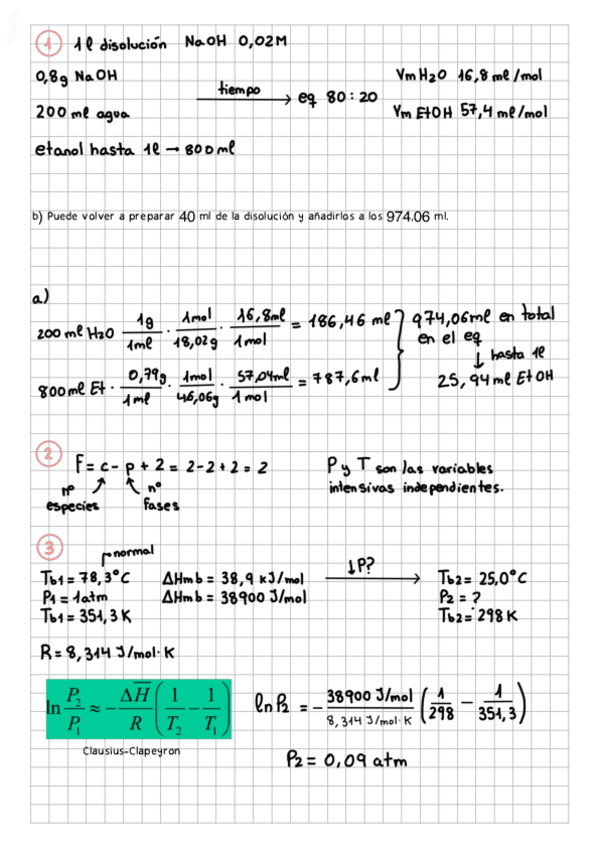 1 1l disolución NaOH 0,02M
0,8g NaOH
200 ml agua
etanol hasta 1l → 800ml
tiempo → eq 80:20
Vm H2O 16,8 ml/mol
Vm EtOH 57,4 ml/mol
b) Puede volver a preparar 40 ml de la disolución y añadirlos a los 974.06 ml.
a)
200 ml H2O 1g/1ml · 1mol/18,02g · 16,8ml/1mol = 186,46 ml
800ml Et · 0,79g/1ml · 1mol/46,06g · 57,04ml/1mol = 787,6ml
974,06ml en total
en el eq
↓ hasta 1l
25,94ml EtOH
2 F = c - p + 2 = 2-2+2 = 2
nº especies
nº fases
P y T son las variables
intensivas independientes.
3
normal
Tb1 = 78,3°C
P1 = 1atm
Tb1 = 351,3 K
ΔHmb = 38,9 kJ/mol
ΔHmb = 38900 J/mol
↓P?
Tb2 = 25,0°C
P2 = ?
Tb2 = 298 K
R = 8,314 J/mol·K
ln P2/P1 ≈ - ΔH/R (1/T2 - 1/T1)
Clausius-Clapeyron
ln P2 = - 38900 J/mol / 8,314 J/mol·K (1/298 - 1/351,3)
P2 = 0,09 atm